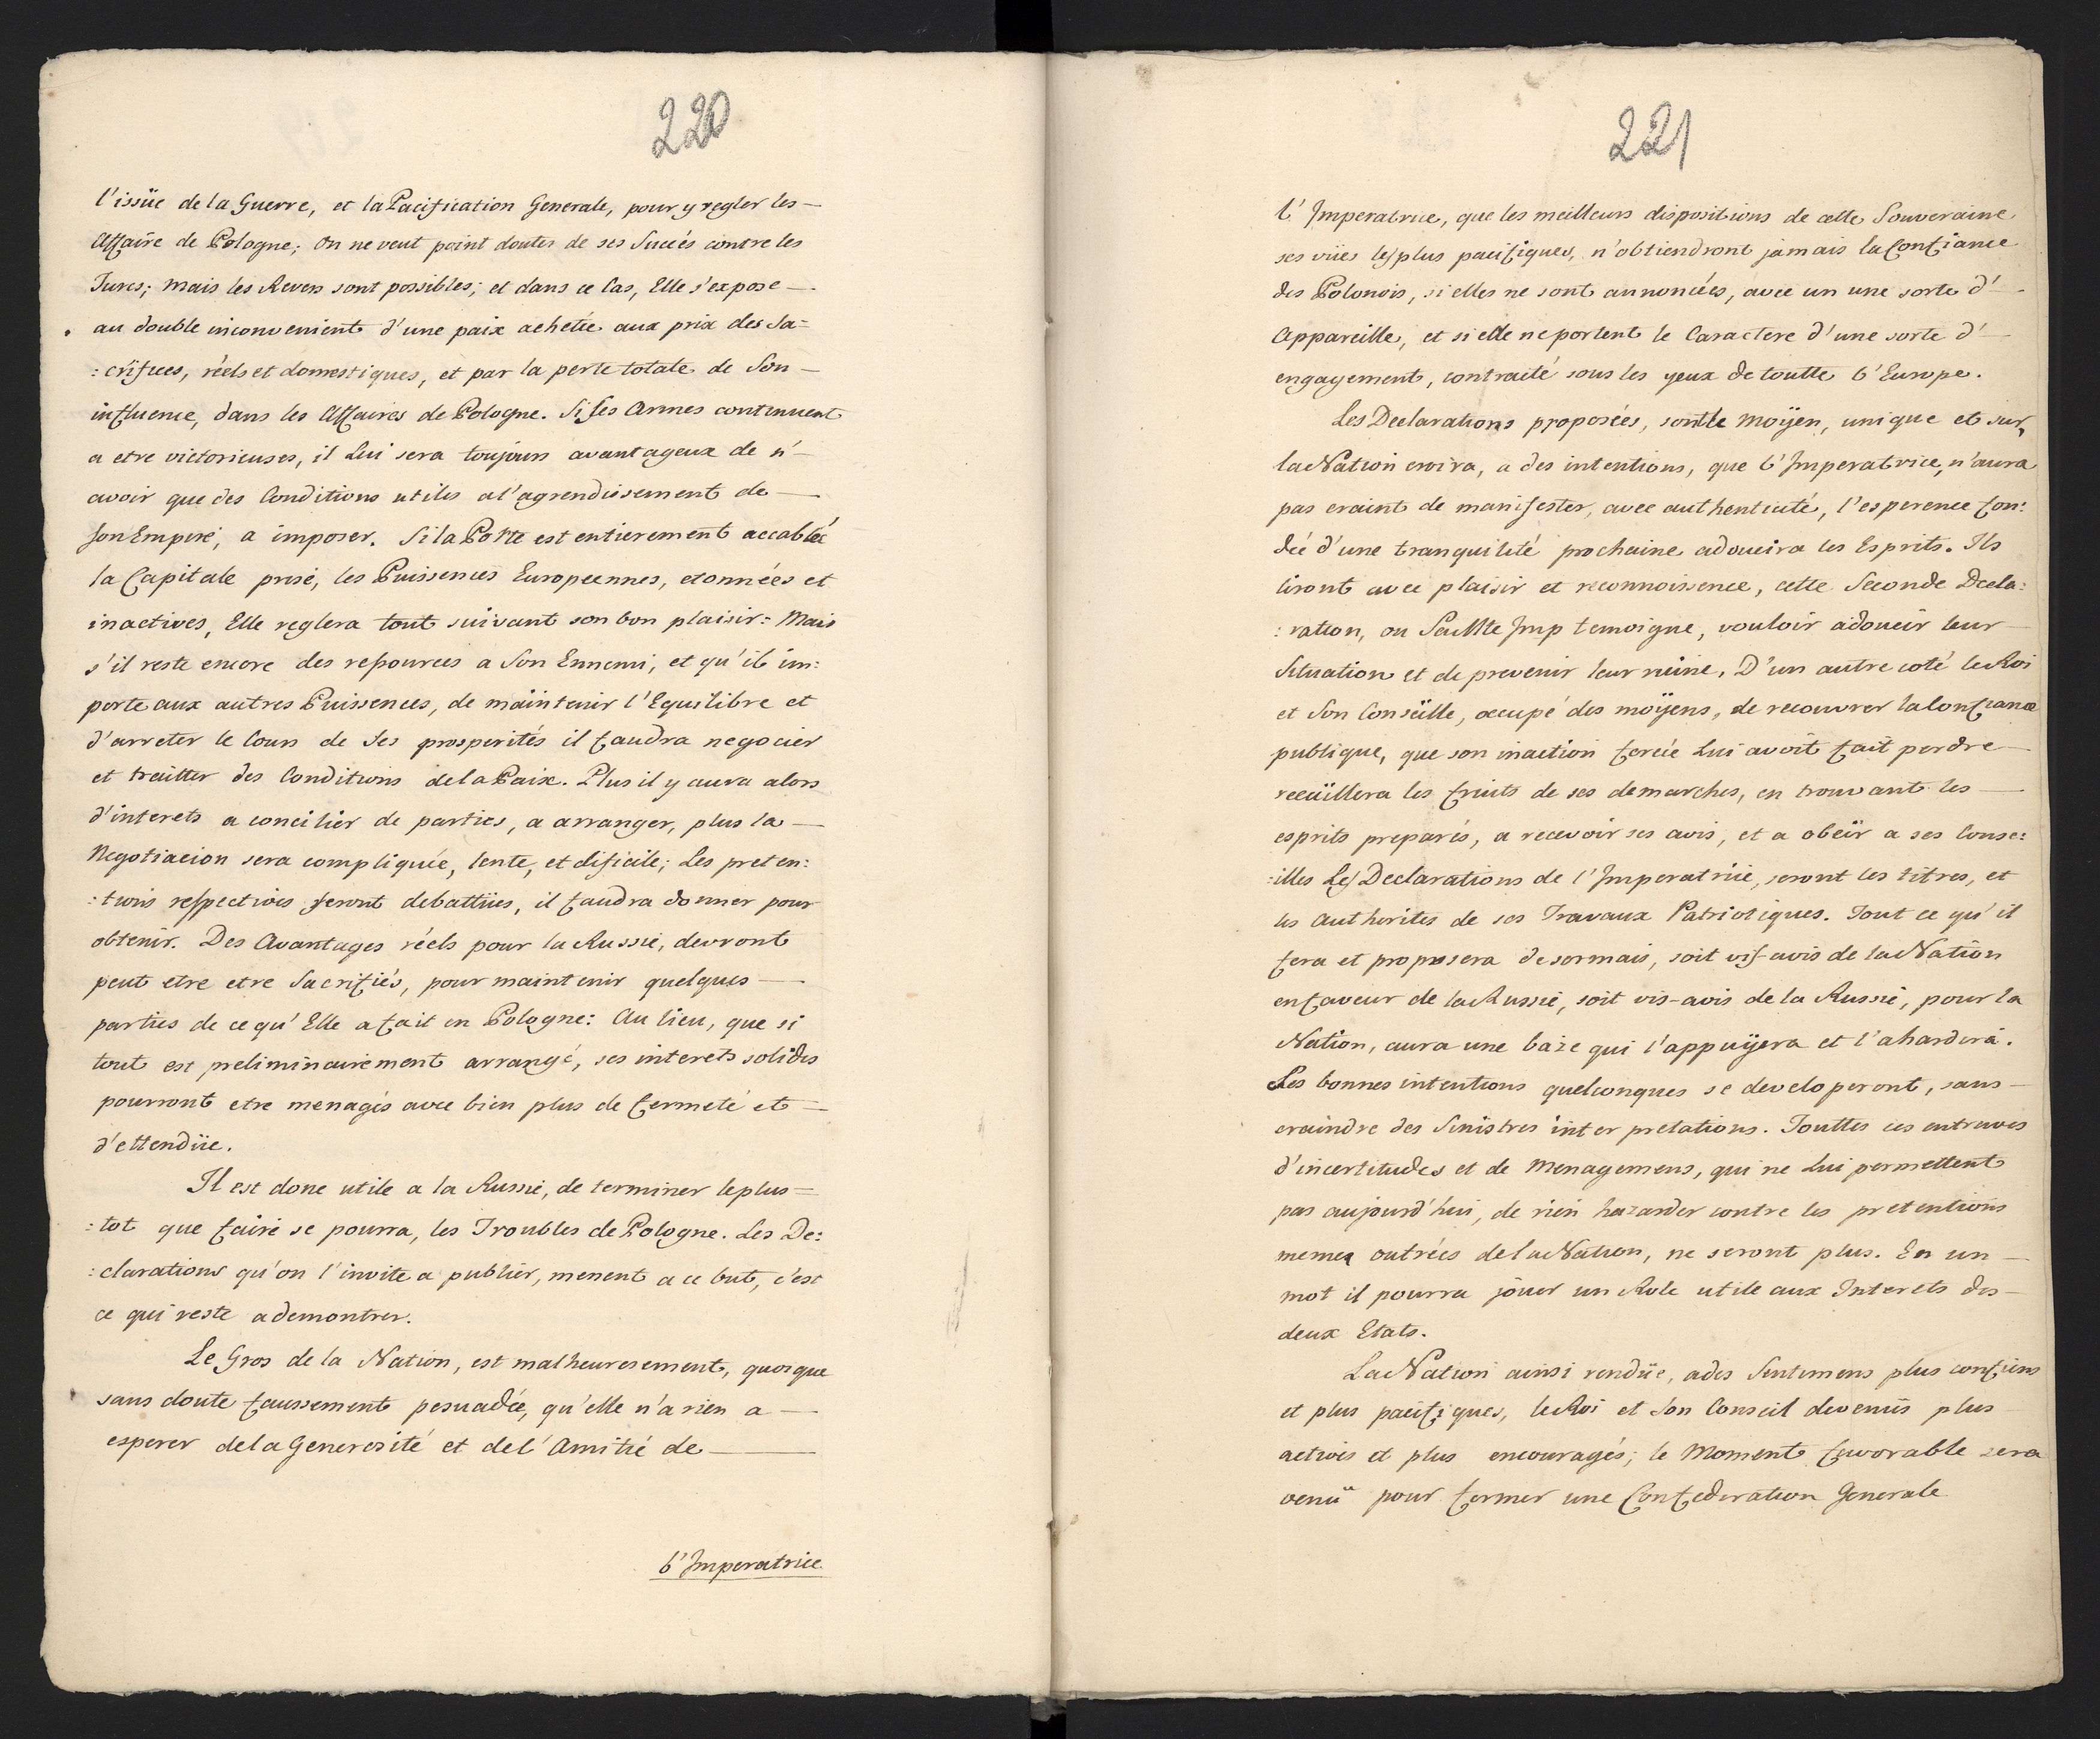 220
l'issüe de la Guerre, et la Pacification Generale, pour y regler les —
Affaire de Pologne; On ne veut point douter de ses Succés contre les
Turcs; mais les Revers sont possibles; et dans ce Cas, Elle s'expose —
au double inconvenient d'une paix achetée aux prix des Sa=
:crifices, réels et domestiques, et par la perte totale de Son —
influence, dans les Affaires de Pologne. Si ses Armes continuent
a etre victorieuses, il Lui sera toujours avantageux de n'—
avoir que des Conditions utiles a l'agrendissement de —
son Empire, a imposer. Si la Porte est entierement accablée
la Capitale prise, les Puissences Europeennes, etonnées et
inactives, Elle reglera tout suivant son bon plaisir: Mais
s'il reste encore des ressources a Son Ennemi, et qu'il im:
porte aux autres Puissences, de maintenir l'Equilibre et
d'arreter le Cours de Ses prosperités il faudra negocier
et traitter des Conditions de la Paix. Plus il y aura alors
d'interets a concilier de parties, a arranger, plus la —
Negotiacion sera compliquée, lente, et dificile; Les preten:
:tions respectives seront debattües, il faudra donner pour
obtenir. Des Avantages réels pour la Russie, devront
peut etre etre Sacrifiés, pour maintenir quelques —
parties de ce qu'Elle a fait en Pologne: Au lieu, que si
tout est preliminairement arrangé, ses interets solides
pourront etre menagés avec bien plus de fermeté et —
d'ettendüe.
Il est donc utile a la Russie, de terminer le plus =
:tot que faire se pourra, les Troubles de Pologne. Les De:
:clarations qu'on l'invite a publier, menent a ce but, c'est
ce qui reste a demontrer.
Le Gros de la Nation, est malheuresement, quoique
sans doute faussement pesuadée, qu'elle n'a rien a —
esperer de la Generosité et de l'Amitié de —
l'Imperatrice
221
l'Imperatrice, que les meilleurs dispositions de cette Souveraine
ses vües les plus pacifiques, n'obtiendront jamais la Confiance
des Polonois, si elles ne sont annoncées, avec un une sorte d'—
Appareille, et si elle ne portent le Caractere d'une sorte d'—
engagement, contracté sous les yeux de toutte l'Europe.
Les Declarations proposées, sont le moÿen, unique et sur,
la Nation croira, a des intentions, que l'Imperatrice, n'aura
pas craint de manifester, avec authenticité, l'esperence fon:
dée d'une tranquilité prochaine adoucira les Esprits. Ils
liront avec plaisir et reconnoissence, cette Seconde Decla:
:ration, ou Sa Mté Imp temoigne, vouloir adoucir leur
Situation et de prevenir leur ruine, D'un autre coté le Roi
et Son Conseille, occupé des moÿens, de recouvrer la Confiance
publique, que son inaction forcée Lui avoit fait perdre —
recuillera les fruits de ses demarches, en trouvant les —
esprits preparés, a recevoir ses avis, et a obeïr a ses Conse:
:illes Les Declarations de l'Imperatrice, seront les titres, et
les Authorites de ses Travaux Patriotiques. Tout ce qu'il
fera et proposera desormais, soit vis-avis de la Nation
en faveur de la Russie, soit vis-avis de la Russie, pour la
Nation, aura une baze qui l'appuÿera et l'ahardira.
Les bonnes intentions quelconques se developeront, sans —
craindre des Sinistres interpretations. Touttes ces entraves
d'incertitudes et de Menagemens, qui ne Lui permettent
pas aujourd'hui, de rien hazarder contre les pretentions
memes outrées de la Nation, ne seront plus. En un —
mot il pourra jouer un Role utile aux Interets des —
deux Etats.
La Nation ainsi rendüe, a des Sentimens plus confiens
et plus pacifiques, le Roi et Son Conseil devenüs plus
actives et plus encouragés; le Moment favorable sera
venü pour former une Confederation Generale